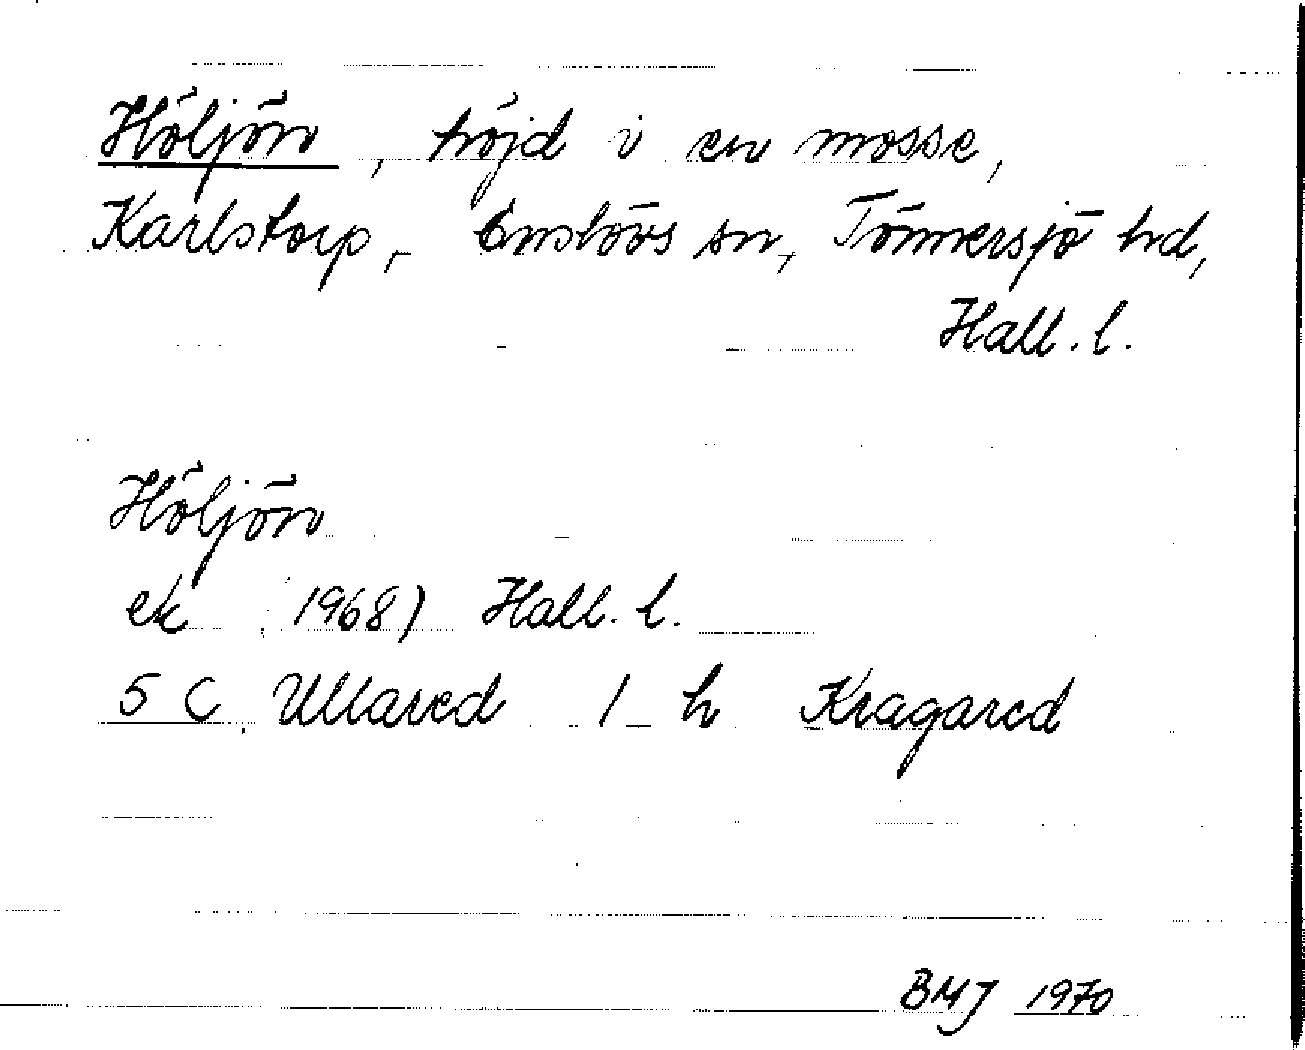 Höljön, höjd i en mosse,
Karlstorp, Enslövs sn, Tönnersjö hd,
Hall. l.
Höljön
ek (1968) Hall. l.
5 C Ullared 1 h Kragared
BMJ 1970